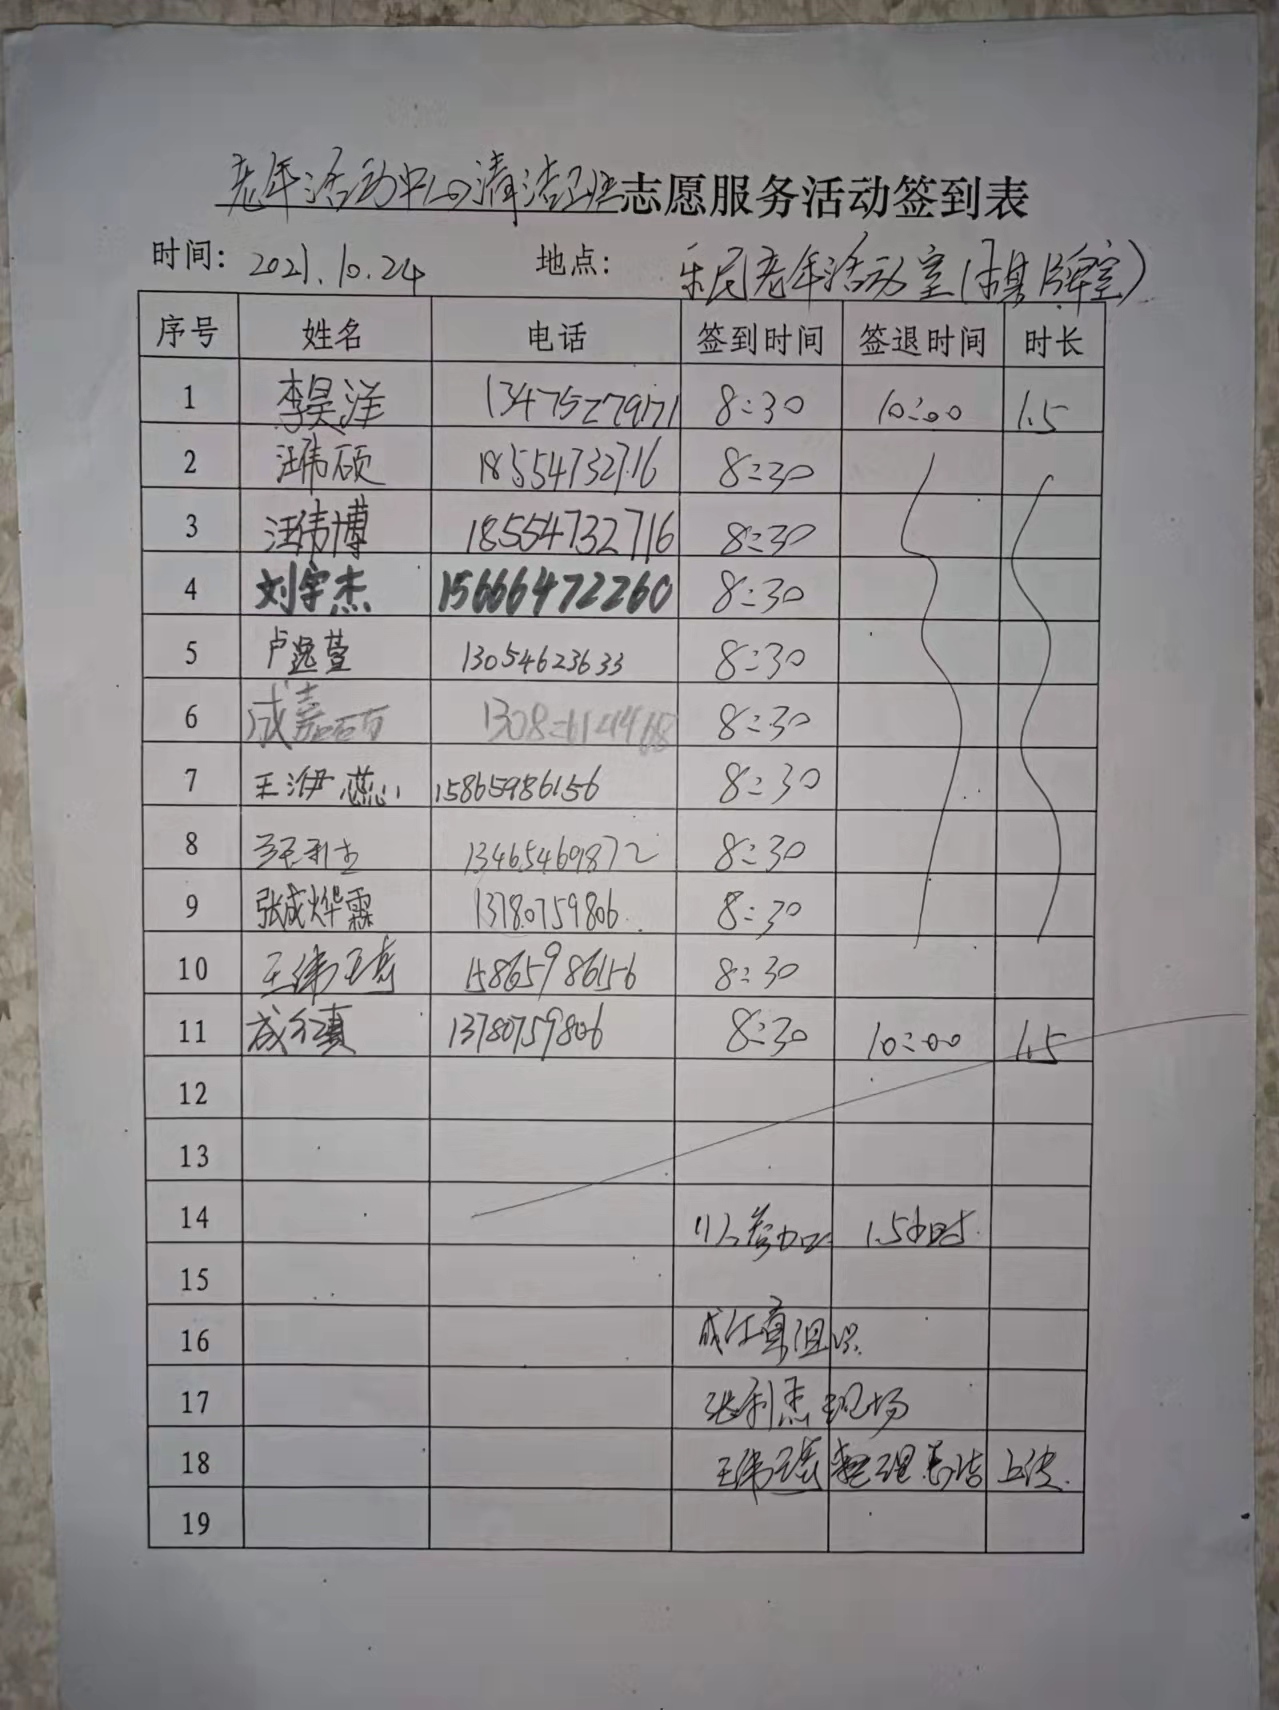 老年活动中心清洁卫生志愿服务活动签到表
时间: 2021.10.24 地点: 乐民老年活动室(棋牌室)
序号 姓名 电话 签到时间 签退时间 时长
1 李昊洋 13475279171 8:30 10:00 1.5
2 汪伟硕 18554732716 8:30
3 汪伟博 18554732716 8:30
4 刘宇杰 15666472260 8:30
5 卢逸萱 13054623633 8:30
6 成嘉 8:30
7 王洢蕊 15865986156 8:30
8 13465469872 8:30
9 张成烨霖 13780759806 8:30
10 王伟 15865986156 8:30
11 13780759806 8:30 10:00 1.5
12
13
14 11人参加 1.5小时.
15
16 组织
17 张利杰现场
18 王伟 整理总结 上传.
19